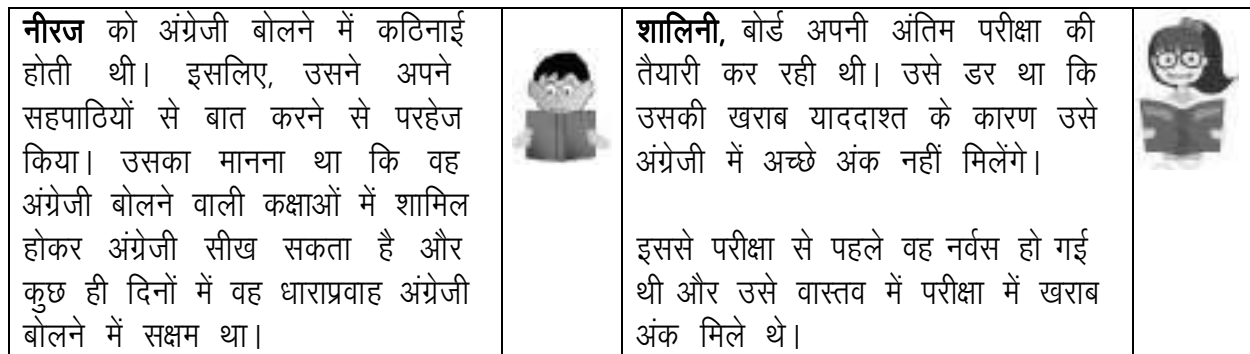 नीरज को अंग्रेजी बोलने में कठिनाई
होती थी। इसलिए, उसने अपने
सहपाठियों से बात करने से परहेज
किया। उसका मानना था कि वह
अंग्रेजी बोलने वाली कक्षाओं में शामिल
होकर अंग्रेजी सीख सकता है और
कुछ ही दिनों में वह धाराप्रवाह अंग्रेजी
बोलने में सक्षम था।
शालिनी, बोर्ड अपनी अंतिम परीक्षा की
तैयारी कर रही थी। उसे डर था कि
उसकी खराब याददाश्त के कारण उसे
अंग्रेजी में अच्छे अंक नहीं मिलेंगे।
इससे परीक्षा से पहले वह नर्वस हो गई
थी और उसे वास्तव में परीक्षा में खराब
अंक मिले थे।